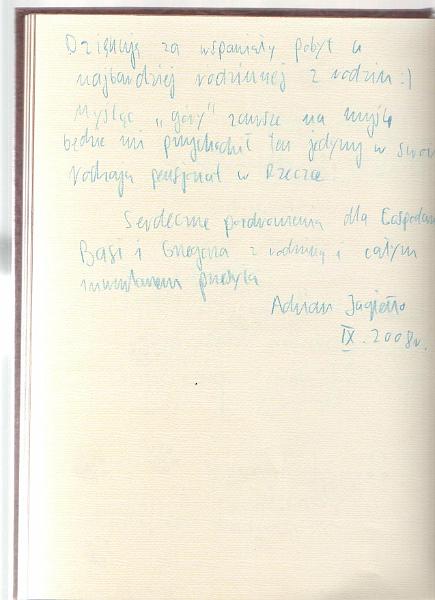 Dziękuję za wspaniały pobyt u
najbardziej rodzinnej z rodzin :)
Myśląc „góry" zawsze na myśl
będzie mi przychodził ten jedyny w swoim
rodzaju pensjonat w Rzecze
Serdeczne pozdrowienia dla Gospodarzy
Basi i Grzegorza z rodziną i całym
inwentarzem przesyła
Adrian Jagiełło
IX. 2008r.